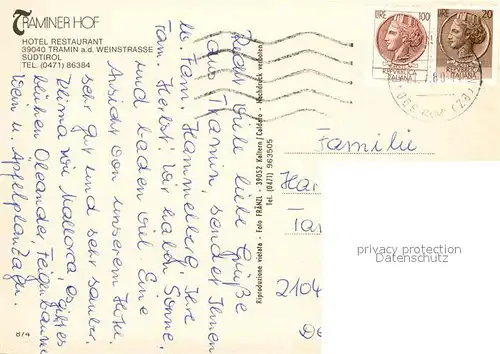 TRAMINER HOF
HOTEL RESTAURANT
39040 TRAMIN a.d. WEINSTRASSE
SÜDTIROL
TEL. (0471) 86384
Recht viele liebe Grüße
aus Tramin, sendet Ihnen
u. Fam. Hammelberg Ihre
Fam. Herbst. Wir haben Sonne,
und baden viel. Eine
Ansicht von unserem Hotel
sehr gut und sehr sauber.
Klima wie Mallorca, es gibt
blühen Oleander, Feigenbäume
Wein u. Apfelplantagen.
874
Riproduzione vietata - Foto FRÄNZL - 39052 Kaltern/Caldaro - Nachdruck verboten
Tel. (0471) 963505
LIRE 100
REPVBBLICA
ITALIANA
LIRE 20
ITALIANA
80
(BZ)
Familie
Har
Tar
2104
D
privacy protection
Datenschutz